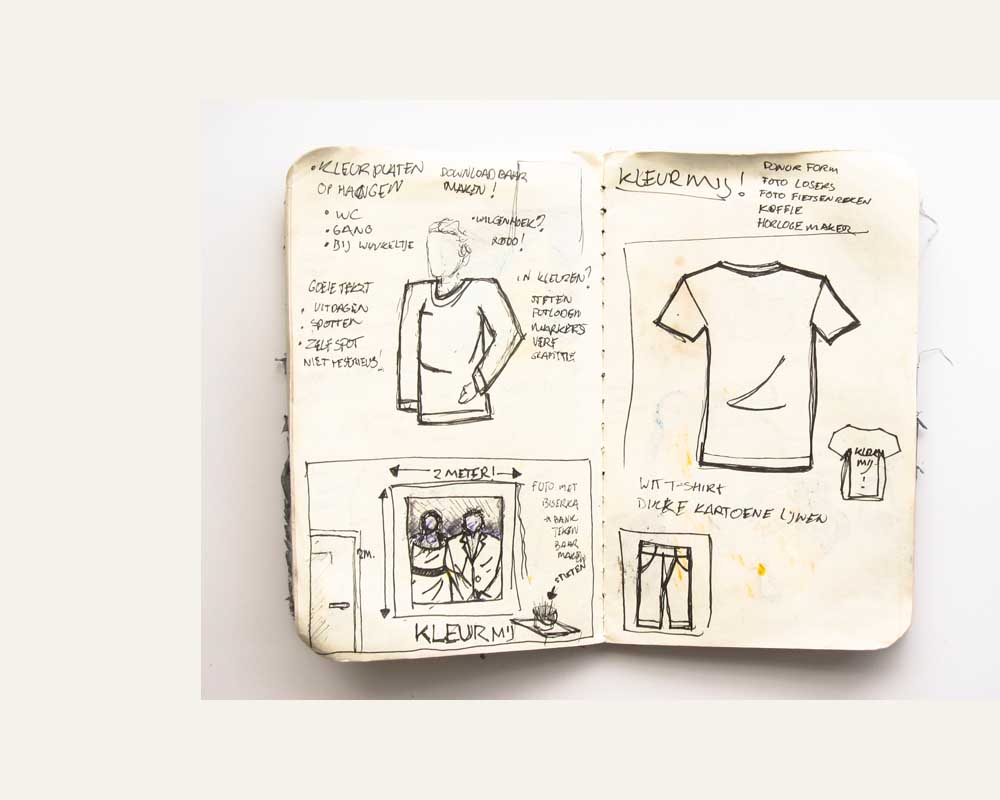 • KLEURPLATEN
OP HANGEN
• WC
• GANG
• BIJ WINKELTJE
DOWNLOAD BAAR
MAKEN !
• WILGENHOEK?
XODO!
GOEIE TEKST
• UITDAGEN
• SPOTTEN
• ZELFSPOT
NIET TE SERIEUS!
IN KLEUREN?
STIFTEN
POTLODEN
MARKERS
VERF
GRAFITTIE
2 METER!
2M.
FOTO MET
BISERKA
→ BANK
TEKEN
BAAR
MAKEN
STIFTEN
KLEUR MIJ
KLEUR MIJ!
DONOR FORM
FOTO LOSERS
FOTO FIETSEN REKEN
KOFFIE
HORLOGE MAKER
KLEUR
MIJ
!
WIT T-SHIRT
DIKKE KARTOENE LIJNEN